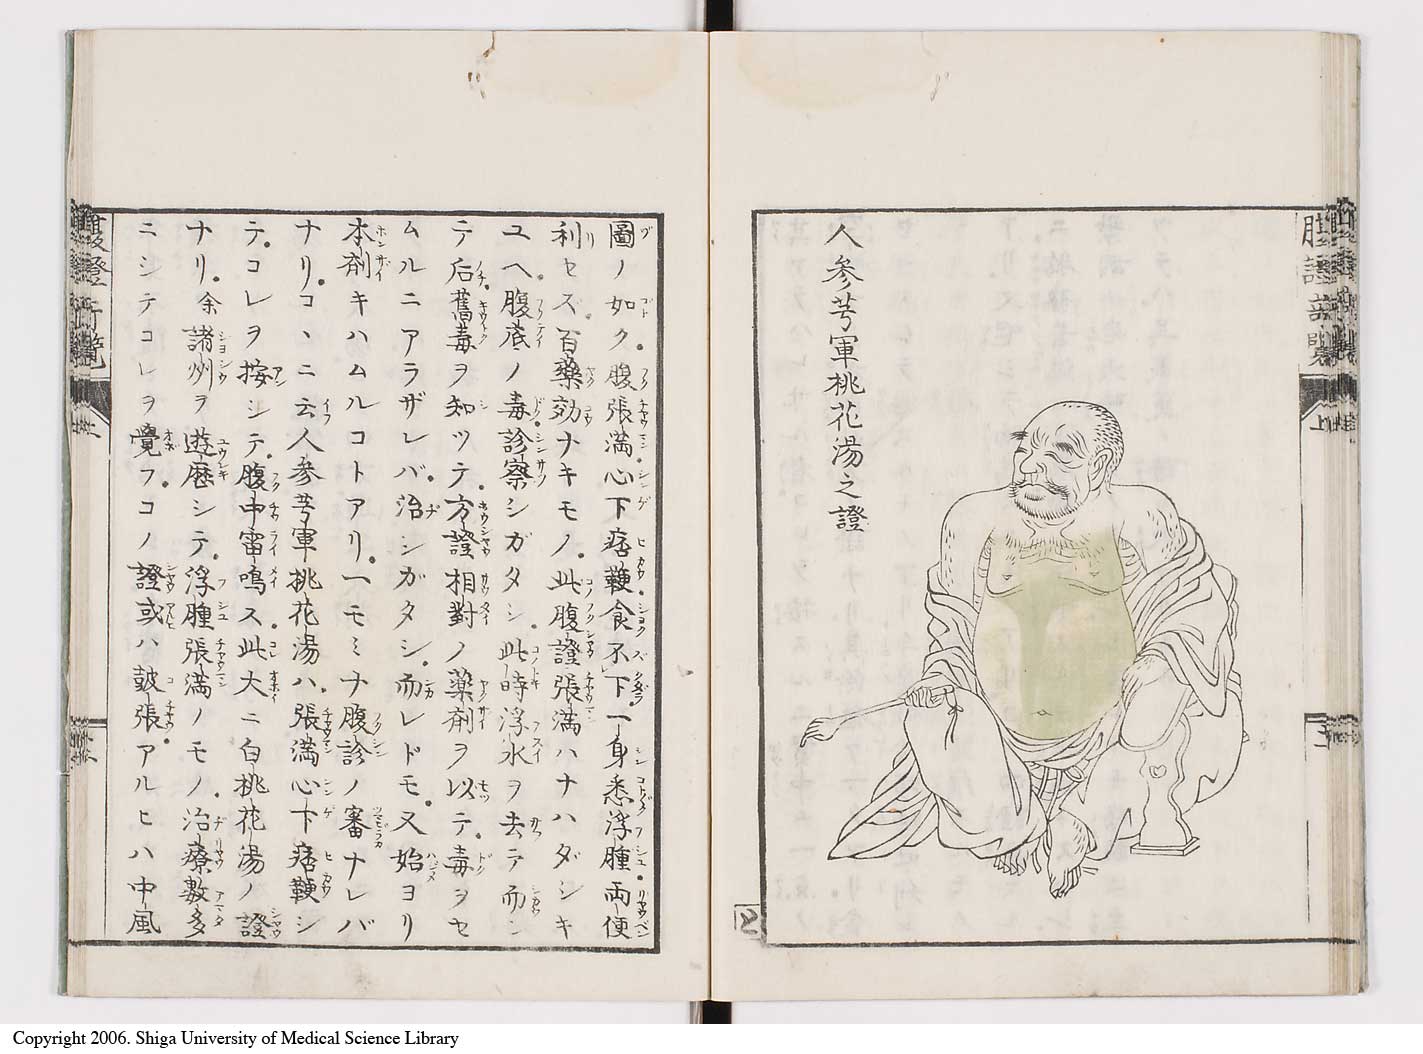 人參芎軍桃花湯之證
圖ノ如ク腹張滿心下痞鞕食不下一身悉浮腫兩便
利セズ百藥効ナキモノ此腹證張満ハナハダシキ
ユヘ腹底ノ毒診察シガタシ此時浮水ヲ去テ而ン
テ后舊毒ヲ知ツテ方證相對ノ薬剤ヲ以テ毒ヲセ
ムルニアラザレバ治シガタシ而レドモ又始ヨリ
本劑キハムルコトアリ一モミナ腹診ノ審ナレバ
ナリコヽニ云人參芎軍桃花湯ハ張満心下痞鞕シ
テコレヲ按シテ腹中雷鳴ス此大ニ白桃花湯ノ證
ナリ余諸州ヲ遊歴シテ浮腫張満ノモノ治療數多
ニシテコレヲ覺フコノ證或ハ皷張アルヒハ中風
Copyright 2006. Shiga University of Medical Science Library